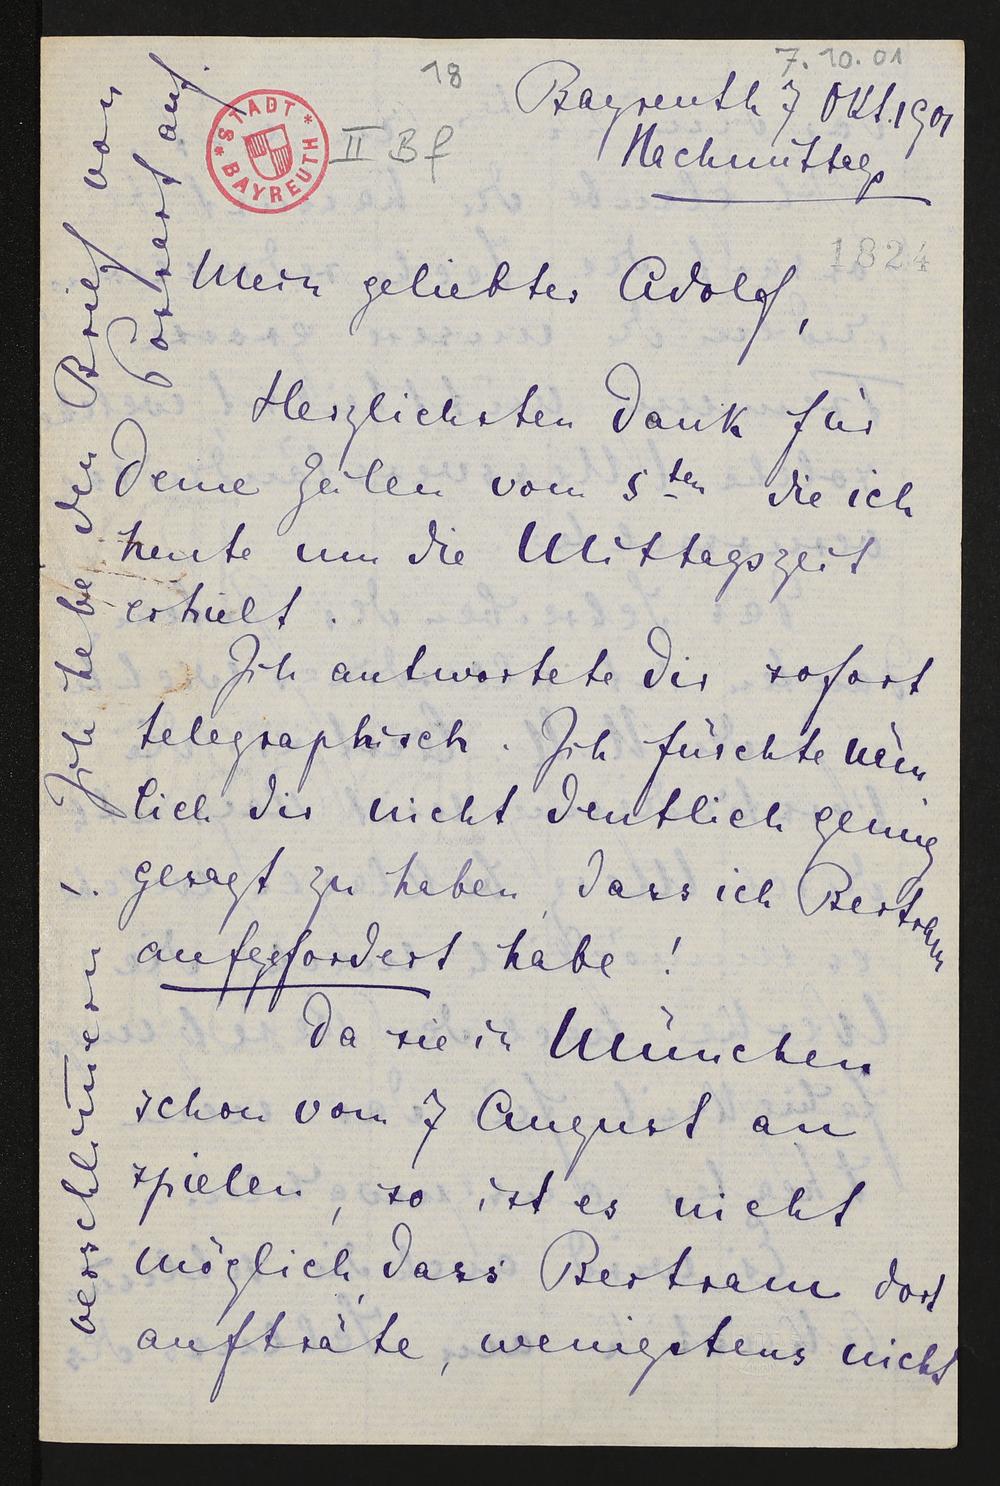 18
7.10.01
STADT BAYREUTH
II Bf
Bayreuth 7 Okt. 1901
Nachmittags
1824
Mein geliebter Adolf,
Herzlichsten Dank für
Deine Zeilen vom 5ten die ich
heute um die Mittagszeit
erhielt.
Ich antwortete Dir sofort
telegraphisch. Ich fürchte näm
lich dir nicht deutlich genug
gesagt zu haben, dass ich Bertram
aufgefordert habe!
Da sie in München
schon vom 7 August an
spielen, so ist es nicht
möglich, dass Bertram dort
aufträte, wenigstens nicht
verschlimmern!.
Ich hebe den Brief von
Possart auf.